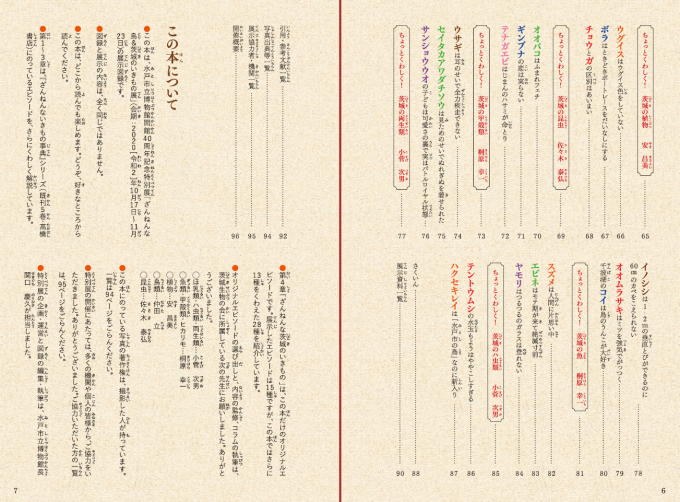 ちょっとくわしく! 茨城の植物 安 昌美 65
ウグイスはウグイス色をしていない 66
ボラはときどきボートレースを台いなしにする 67
チョウとガの区別はあいまい 68
ちょっとくわしく! 茨城の昆虫 佐々木 泰弘 69
オオバコはふまれフェチ 70
ギンブナの恋は実らない 71
テナガエビはじまんのハサミが命とり 72
ちょっとくわしく! 茨城の甲殻類 桐原 幸一 73
ウサギは耳のせいで全力疾走できない 74
セイタカアワダチソウは見ためのせいでぬれぎぬを着せられた 75
サンショウウオの子どもは可愛さの裏で実はバトルロイヤル状態 76
ちょっとくわしく! 茨城の両生類 小菅 次男 77
イノシシは1〜2mの機底とびができるのに
60cmのカベをこえられない 78
オオムラサキはミツを強気でがっつく 79
千波湖のコイは鳥のうんこが大好き 80
ちょっとくわしく! 茨城の魚 桐原 幸一 81
スズメは人間に片思い中 82
エビネはモテ期が来て絶滅寸前 83
ヤモリはつるつるのガラスは登れない 84
ちょっとくわしく! 茨城のハ虫類 小菅 次男 85
テントウムシの水玉もようはややこしすぎる 86
ハクセキレイは「水戸市の鳥」なのに新入り 87
さくいん 88
展示資料一覧 90
引用・参考文献一覧 92
写真出典等一覧 94
展示協力者・機関一覧 95
開催概要 96
この本について
●この本は、水戸市立博物館開館40周年記念特別展「ざんねんな
鳥&茨城のいきもの展」(会期 2020(令和2)年10月17日〜11月
23日)の展示図録です。
●図録と展示の内容は、全く同じではありません。
●この本は、どこから読んでも楽しめます。どうぞ、好きなところから
読んでください。
●第1〜3章は、『ざんねんないきもの事典』シリーズ(既刊5巻・高橋
書店)にのっているエピソードを、さらにくわしく解説しています。
●第4章「ざんねんな茨城のいきもの」は、この本だけのオリジナルエ
ピソードです。展示したエピソードは15種ですが、この本ではさらに
13種をくわえた28種を紹介しています。
●オリジナルエピソードの選び出しと、内容の監修、コラムの執筆は、
茨城生物の会に所属している次の先生にお願いしました。ありがと
うございました。
○ほ乳類・ハ虫類・両生類…小菅 次男
○魚類・甲殻類・ヒカリモ…桐原 幸一
○植物…安 昌美
○鳥類…仲田 立
○昆虫…佐々木 泰弘
●この本にのっている写真の著作権は、撮影した人が持っています。
一覧は94ページをごらんください。
●特別展の開催にあたっては、多くの機関や個人の皆様から、ご協力をい
ただきました。ありがとうございました。ご協力いただいた方の一覧
は、95ページをごらんください。
●特別展の企画・運営と図録の編集・執筆は、水戸市立博物館館長
関口 慶久が担当しました。
7
6